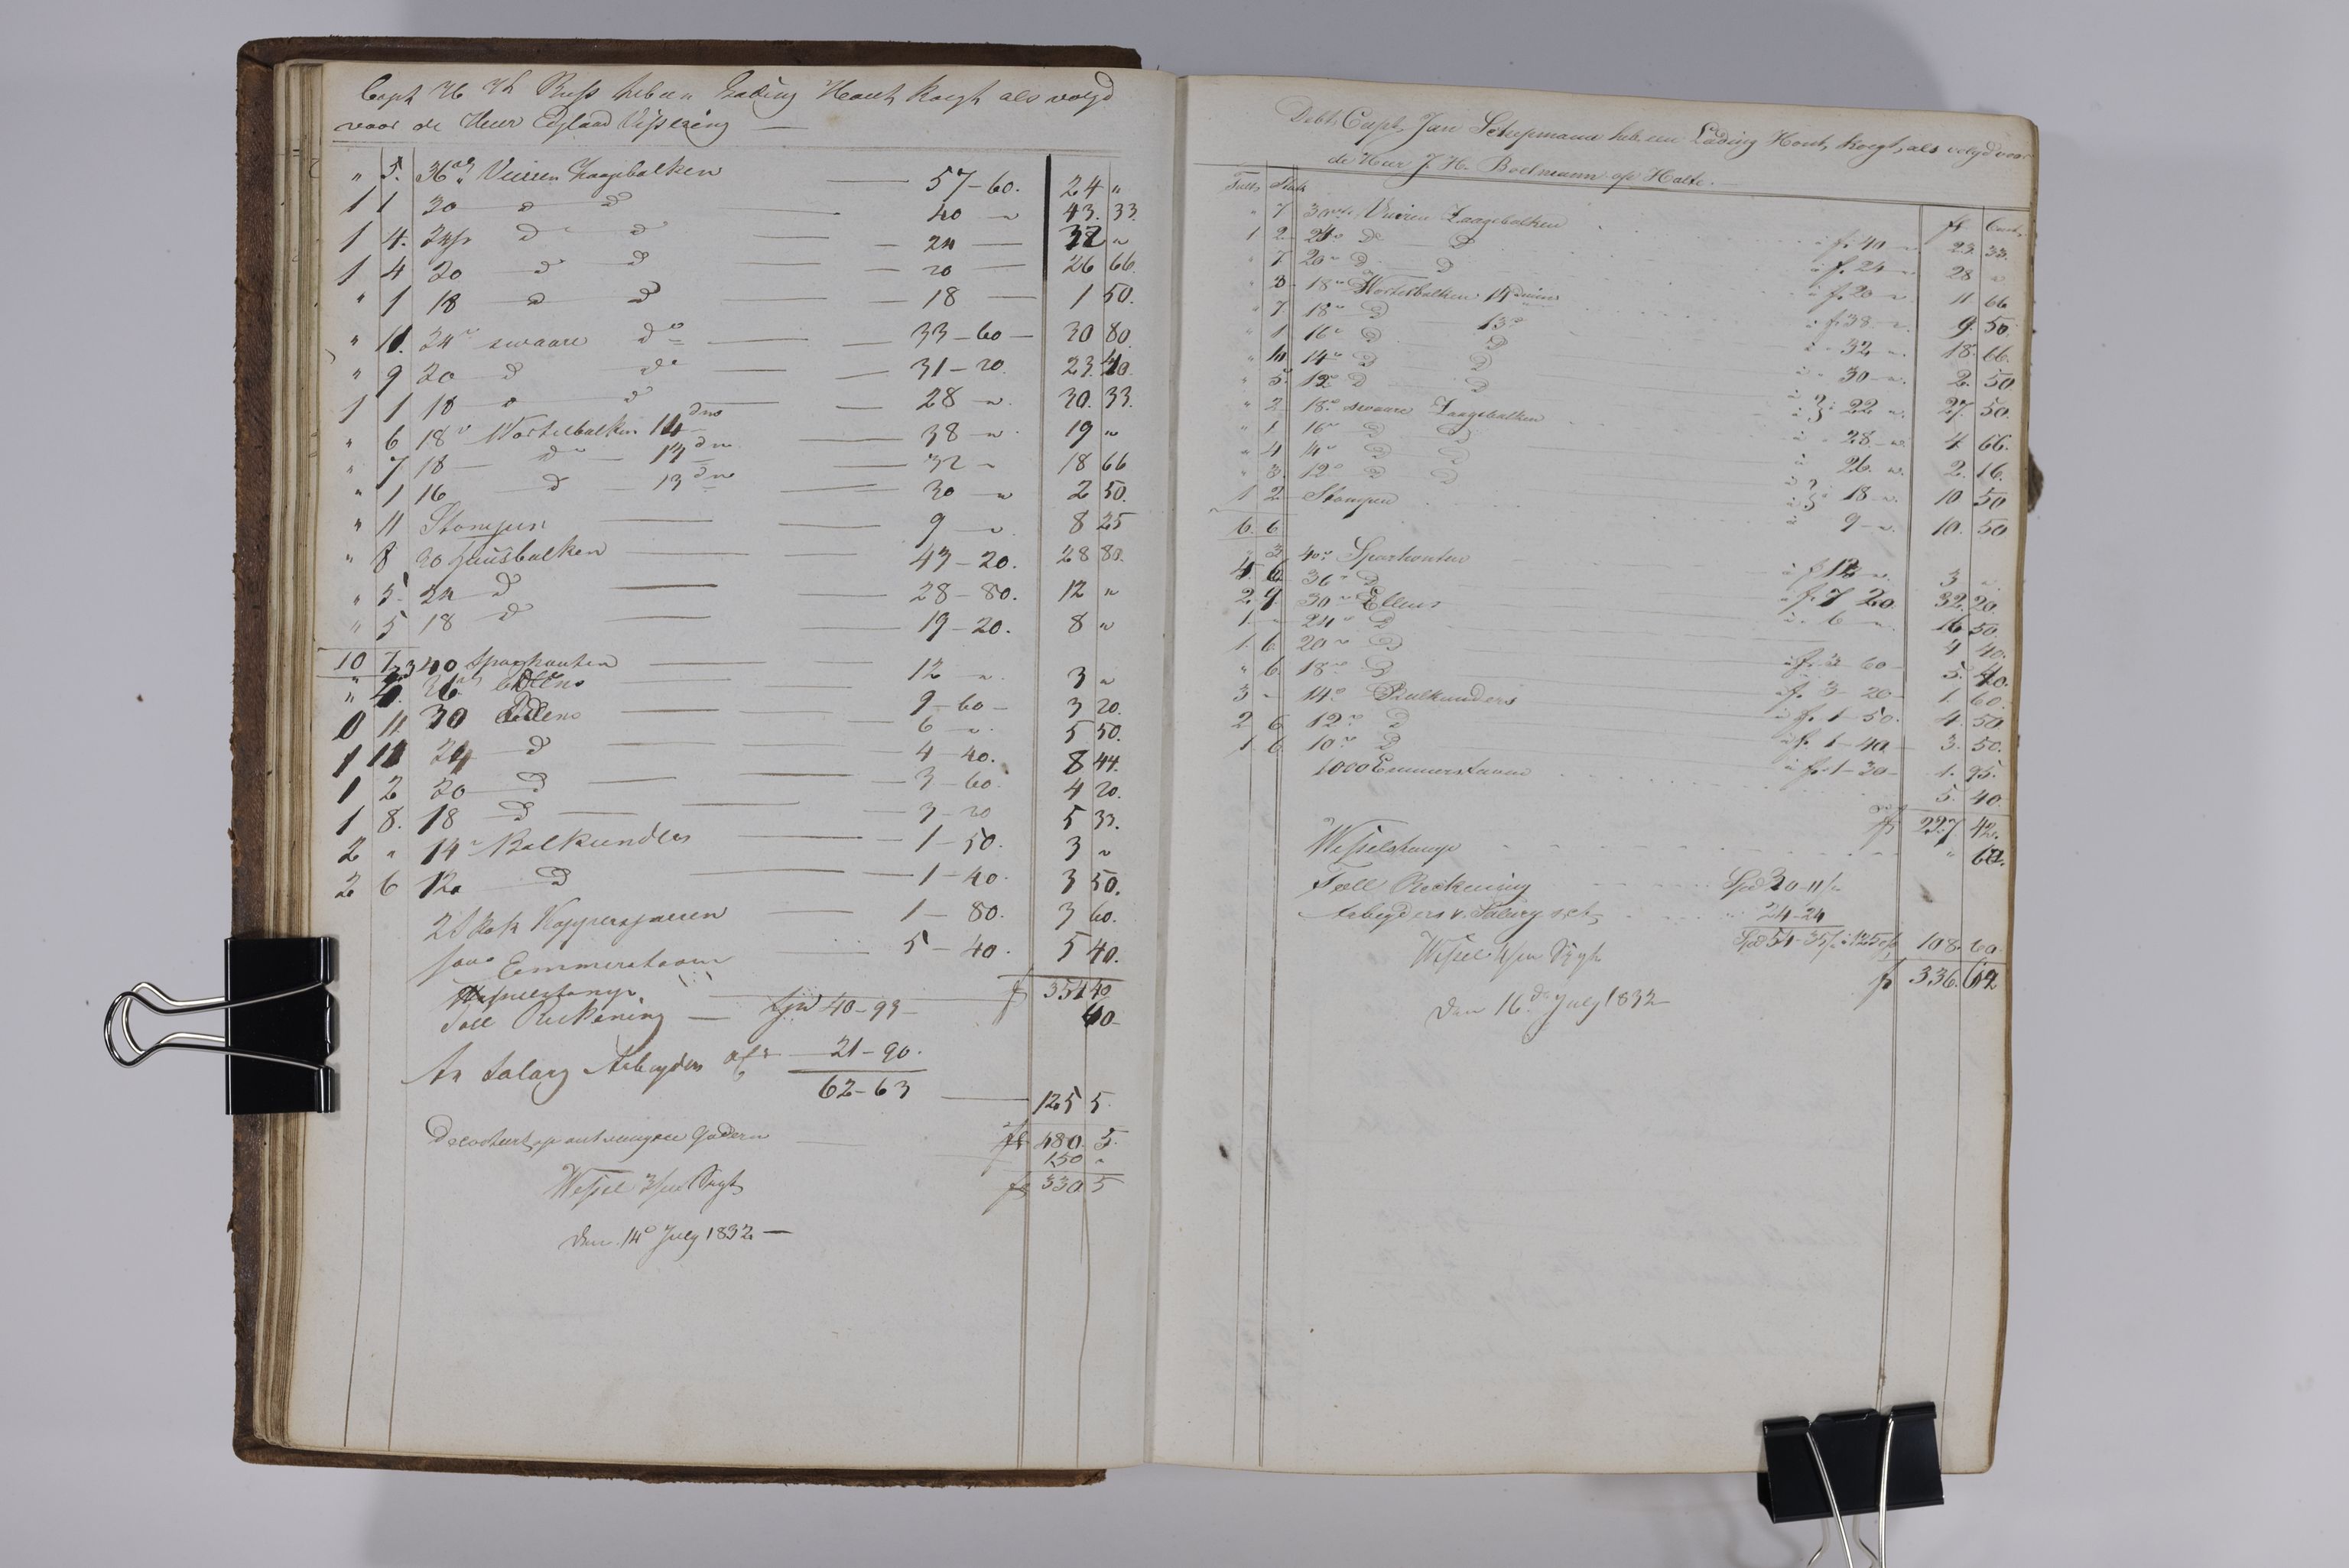 Capt H H Buss heb een Lading Hout koegt als volgd
voor de Heer Vissering —
" 5. 36 Vuiren Zaagebalken — 57-60. 24 "
1 1 30 d d — 40 — " 43. 33.
1 4. 24 d d — 24 — 32 "
1 4 20 d d — 20 — 26 66.
" 1 18 d d — 18 — 1 50.
" 11. 24 swaare do — 33-60 — 30 80.
" 9 20 d do — 31-20. 23. 40.
1 1 18 d d — 28 — " 30. 33.
" 6 18 Wortelbalken 14 dm — 38 — " 19 "
" 7 18 — do — 13 dm — 32 " 18 66
" 1 16 d — 13 dm — 30 — " 2 50.
" 11 Stompen — 9 — " 8 25
" 8 30 huusbalken — 43-20. 28 80.
" 5. 24 d — 28-80. 12 "
" 5 18 d — 19-20. 8 "
10 7
" 3 40 Sparhouten — 12 " 3 "
" 4. 36 — 9-60 — 3 20.
0 11 30 Ellens — 6 " 5 50.
1 11 24 d — 4-40. 8 44.
1 2 20 d — 3-60. 4 20.
1 8. 18 d — 3-20 5 33.
2 " 14 Balkunders — 1-50. 3 "
2 6 12 d — 1-40. 3 50.
2 Skok — 1-80. 3 60.
Emmerstaven — 5-40. 5 40.
f 354 40
Toll Rickening — Spd 40-93 — 60-
An Salary Arbeyders — 21-90.
62-63 — 125 5.
op ontvangene — f 480. 5.
150 "
Wessel f 330 5
den 14 July 1832 —
Debt Capt Jan Schepmann heb een Lading Hout, koegt, als volgd voor
de Heer J. H. Boelmann op Halte. —
Tult Stuk fl Cent
" 7 30 Vuiren Zaagebalken à f. 40 — " 23. 33.
1 2 24 do d à f. 24 — " 28 "
" 7 20 d d à f. 20 — " 11 66
" 3 18 Wortelbalken 14 duim à f 38 — " 9. 50.
" 7 18 d 13 à 32 — " 18. 66.
" 1 16 d d à 30 — " 2. 50
14 d d
" 5. 12 d d à 22 " 27. 50.
" 2 18 swaare Zaagebalken à 28 — " 4 66.
" 1 16 d d à 26. " 2. 16.
" 4 14 d d
" 3. 12 d d à 18 — " 10 50
1 2 Stompen à 9 — " 10. 50
6. 6
" 3 40 Sparhouten à f 12 " 3 "
4 6 36 d à f 7 20. 32. 20.
2 9. 30 Ellens à 6 — " 16 50.
1. — 24 d 4 40.
1. 6. 20 d à f. 3 60 — 5. 40.
" 6. 18 d à f. 3 — 20 — 1. 60.
3 — 14 Balkunders à f. 1-50. 4. 50
2 6 12 d à f. 1-40 — 3. 50.
1 6 10 d à f. 1-30 — 1. 95.
1000 Emmerstaven 5. 40.
f 227 42.
" 60.
Toll Reekening Spd 30-11
Arbeyders v. Salary 24-24
Spd 54-35 108. 60
Wessel f 336. 62
den 16 July 1832 —